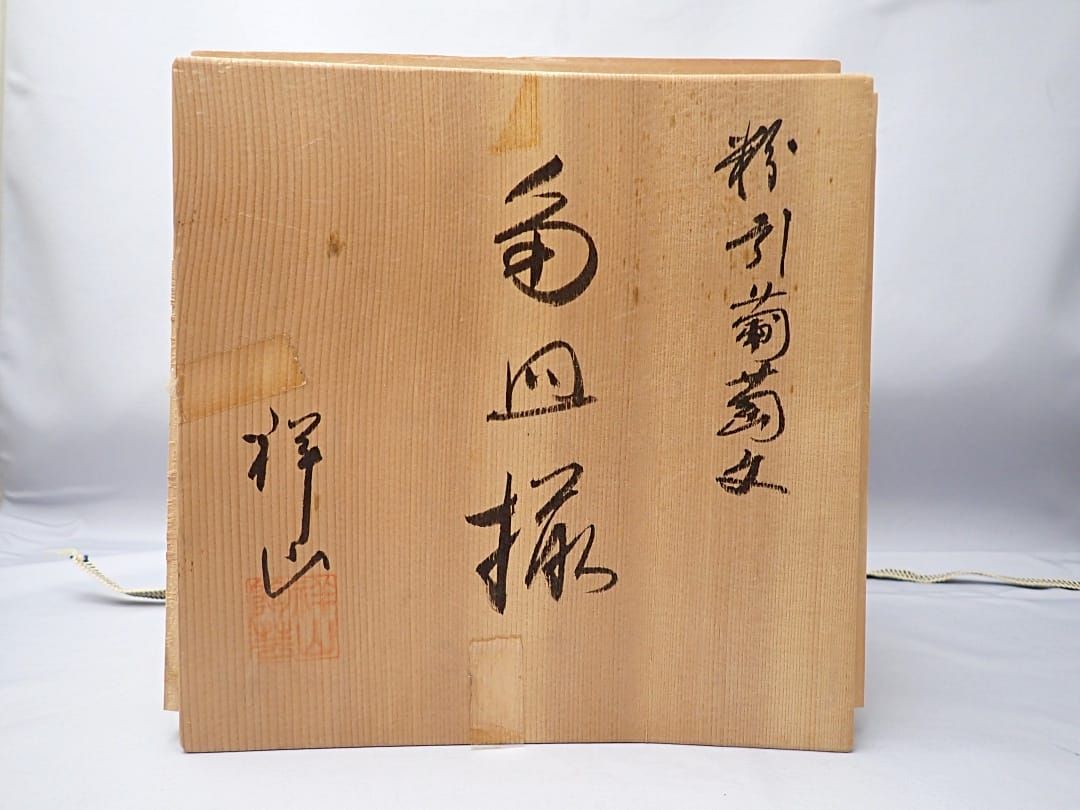 粉引葡萄文
向皿揃
祥山